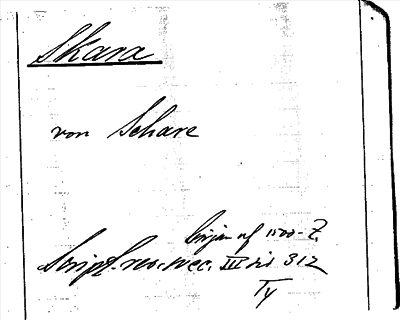 Skara
von Schare
början af 1500-t.
Script. rer. svec. III sid 312
Ty